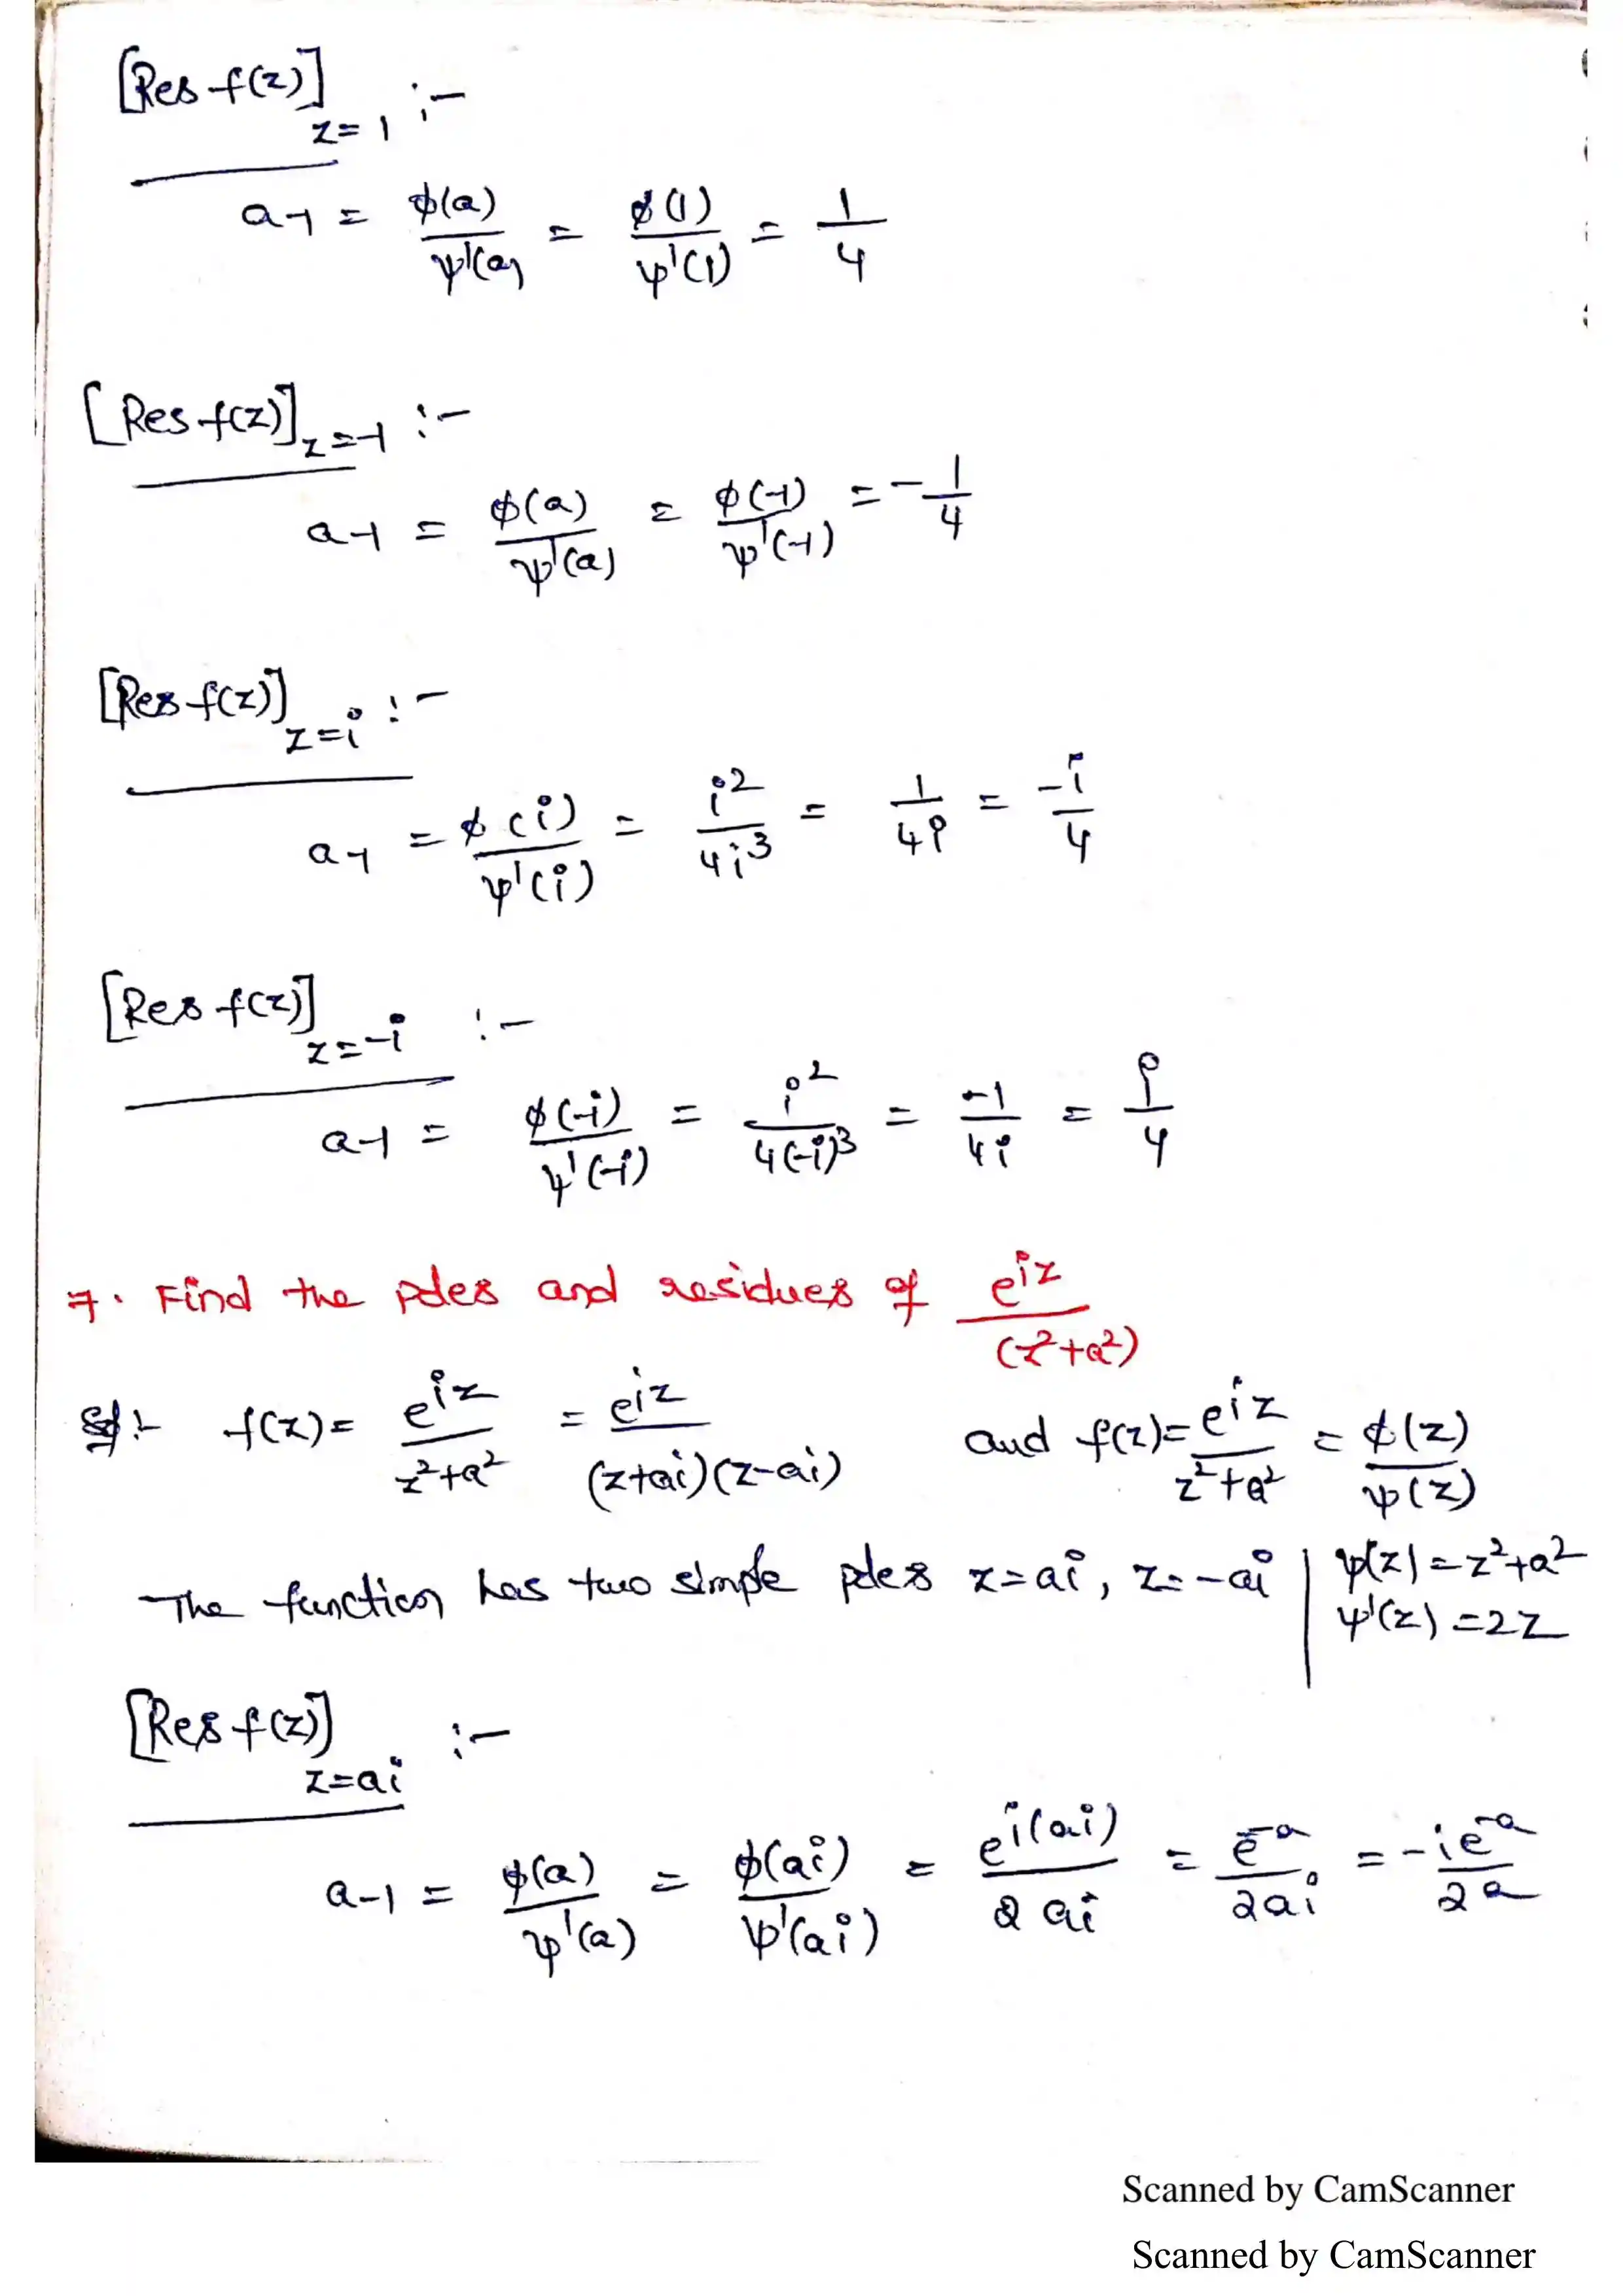 [Res f(z)] z=1 :-
a-1 = φ(a)/ψ'(a) = φ(1)/ψ'(1) = 1/4
[Res f(z)] z=-1 :-
a-1 = φ(a)/ψ'(a) = φ(-1)/ψ'(-1) = -1/4
[Res f(z)] z=i :-
a-1 = φ(i)/ψ'(i) = i²/4i³ = 1/4i = -i/4
[Res f(z)] z=-i :-
a-1 = φ(-i)/ψ'(-i) = i²/4(-i)³ = -1/4i = i/4
7. Find the poles and residues of e^{iz}/(z²+a²)
Sol:- f(z) = e^{iz}/z²+a² = e^{iz}/(z+ai)(z-ai) and f(z) = e^{iz}/z²+a² = φ(z)/ψ(z)
The function has two simple poles z=ai, z=-ai | ψ(z) = z²+a²
ψ'(z) = 2z
[Res f(z)] z=ai :-
a-1 = φ(a)/ψ'(a) = φ(ai)/ψ'(ai) = e^{i(ai)}/2ai = e^{-a}/2ai = -ie^{-a}/2a
Scanned by CamScanner
Scanned by CamScanner